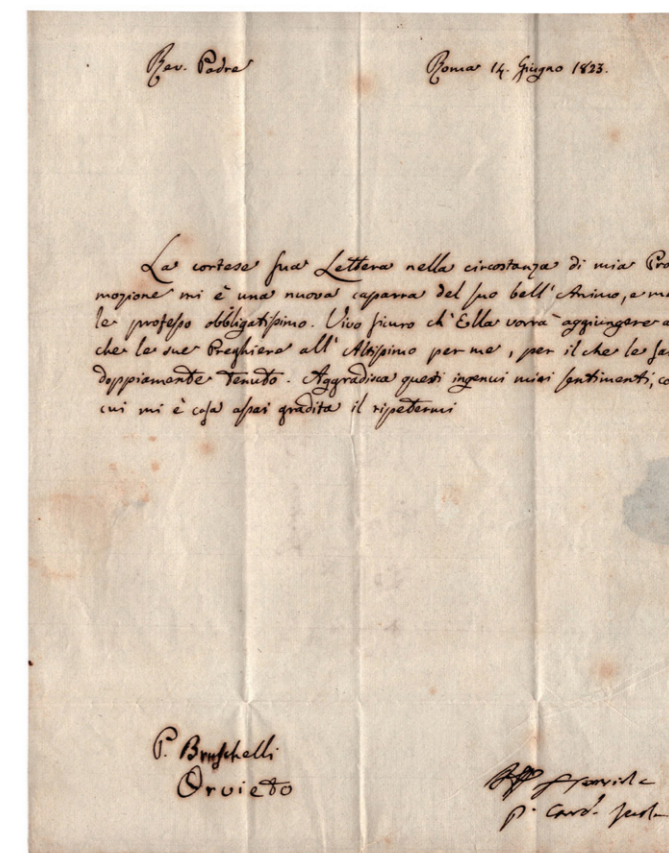 Rev. Padre
Roma 14. Giugno 1823.
La cortese sua Lettera nella circostanza di mia Pro
mozione mi è una nuova caparra del suo bell'Animo, e
le professo obbligatissimo. Vivo sicuro ch'Ella vorrà aggiungere
che le sue Preghiere all'Altissimo per me, per il che le
doppiamente tenuto. Aggradisca questi ingenui miei sentimenti,
cui mi è cosa assai gradita il ripetermi
P. Bruschelli
Orvieto
p. Card.